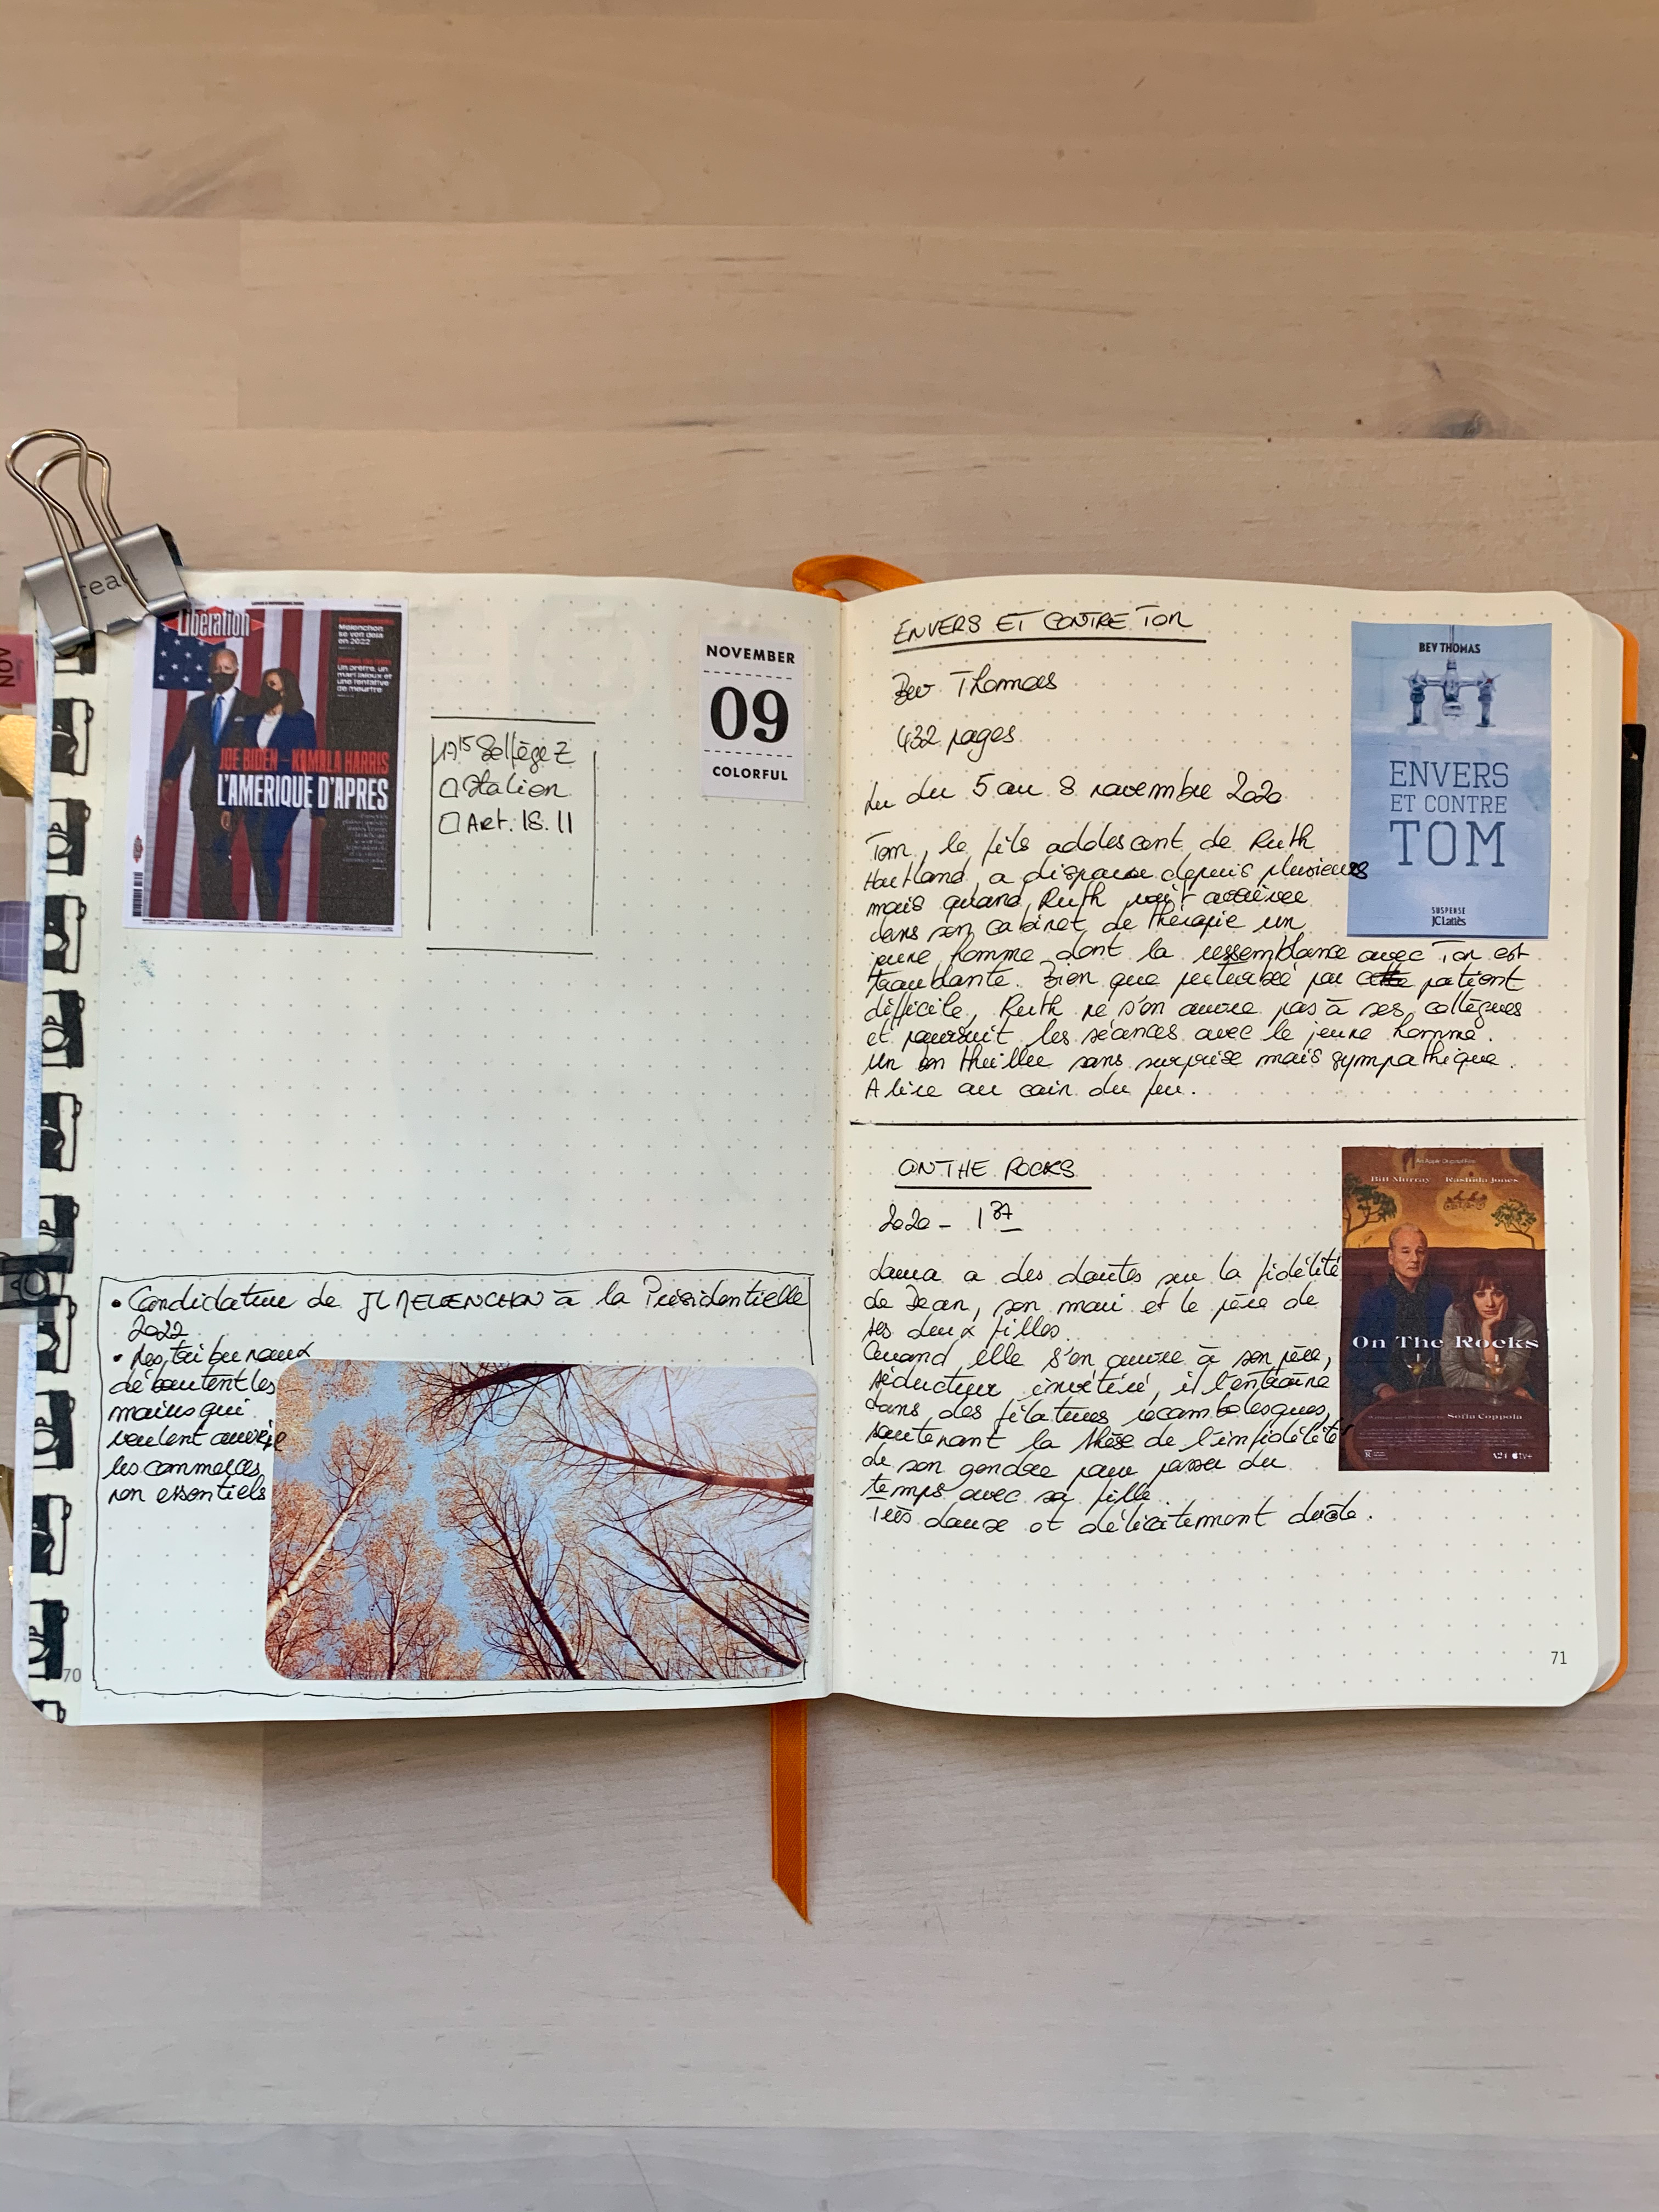 read
NOV
Libération
Mélenchon
se voit déjà
en 2022
Un prêtre, un
mari jaloux et
une tentative
de meurtre
JOE BIDEN – KAMALA HARRIS
L'AMÉRIQUE D'APRÈS
17 15 Solfège Z
Italien
Art. 18.11
NOVEMBER
09
COLORFUL
• Candidature de JL MELENCHON à la Présidentielle
2022
• Les tribunaux
déboutent les
maires qui
veulent ouvrir
les commerces
non essentiels
70
ENVERS ET CONTRE TOM
Bev Thomas
432 pages
Lu du 5 au 8 novembre 2020
Tom, le fils adolescent de Ruth
Hartland a disparu depuis plusieurs
mois quand Ruth voit arriver
dans son cabinet de thérapie un
jeune homme dont la ressemblance avec Tom est
troublante. Bien que perturbée par patient
difficile, Ruth ne s'en ouvre pas à ses collègues
et poursuit les séances avec le jeune homme.
Un bon thriller sans surprise mais sympathique.
A lire au coin du feu.
BEV THOMAS
ENVERS
ET CONTRE
TOM
SUSPENSE
JC Lattès
ON THE ROCKS
2020 - 1 37
Laura a des doutes sur la fidélité
de Dean, son mari et le père de
ses deux filles.
Quand elle s'en ouvre à son père,
séducteur invétéré, il l'entraîne
dans des filatures rocambolesques,
soutenant la thèse de l'infidélité
de son gendre pour passer du
temps avec sa fille.
Très doux et délicatement drôle.
An Apple Original Film
Bill Murray Rashida Jones
On The Rocks
Sofia Coppola
A24 tv+
71